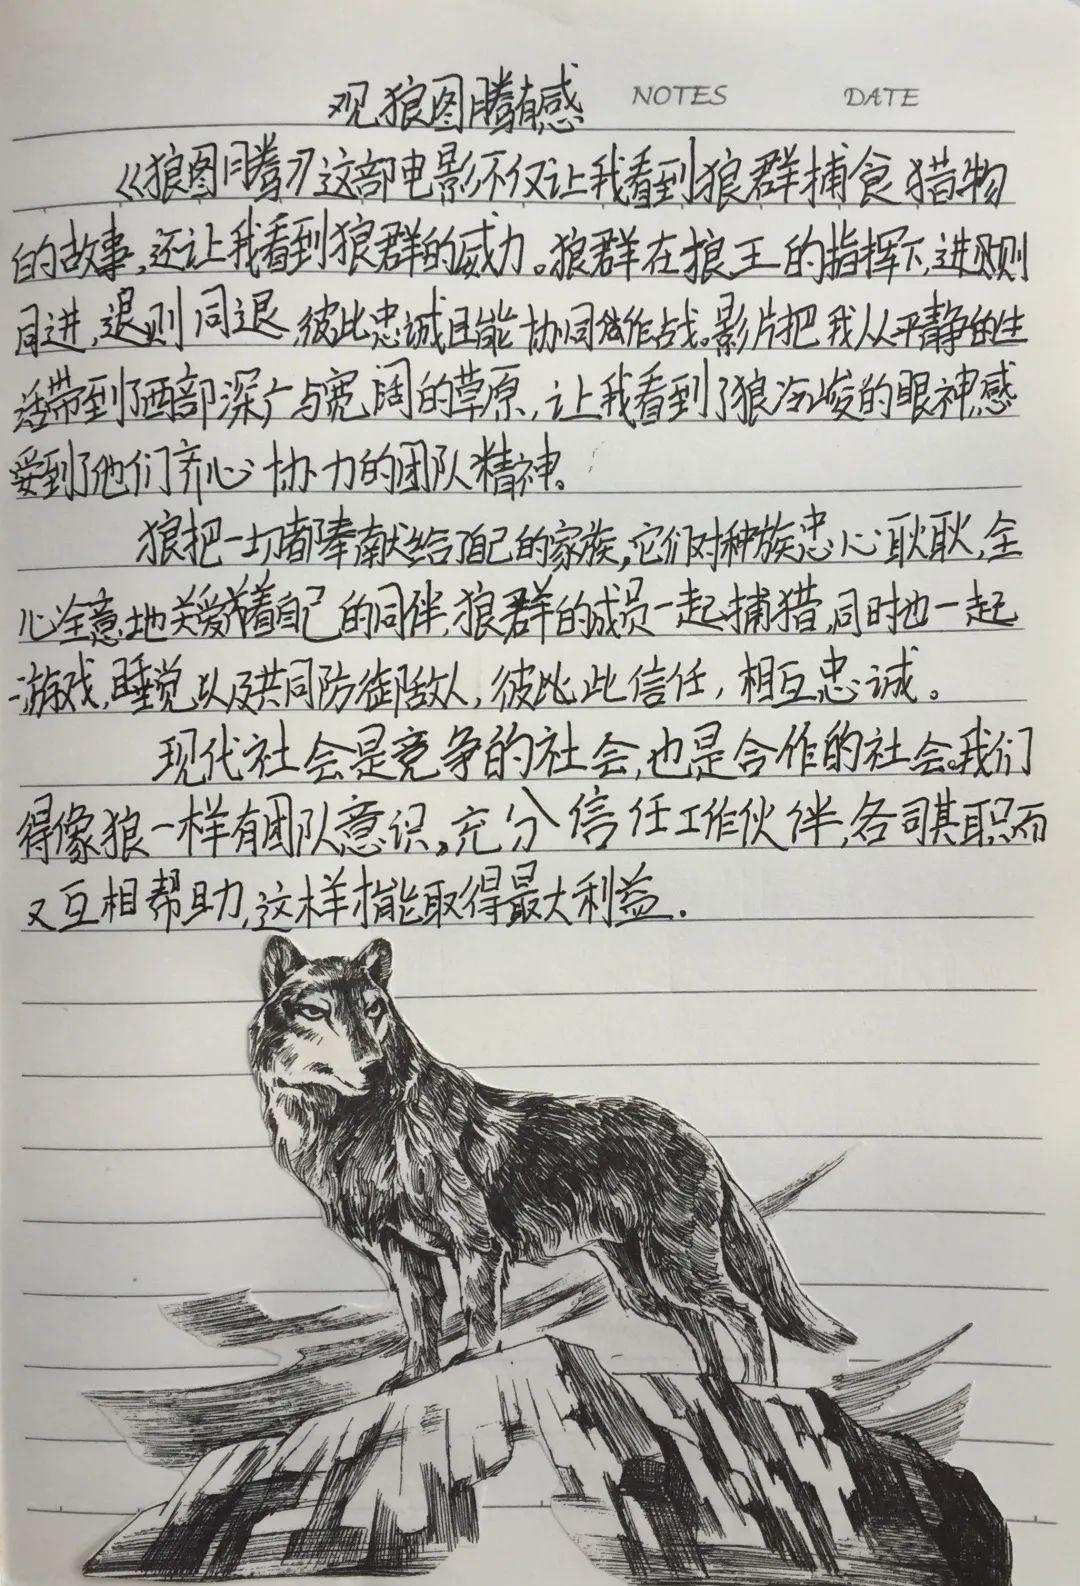 观狼图腾有感 NOTES DATE
《狼图腾》这部电影不仅让我看到狼群捕食猎物
的故事,还让我看到狼群的威力。狼群在狼王的指挥下,进则
同进,退则同退,彼此忠诚且能协同作战。影片把我从平静的生
活带到了西部深广与宽阔的草原,让我看到了狼冷峻的眼神,感
受到了他们齐心协力的团队精神。
狼把一切都奉献给了自己的家族,它们对种族忠心耿耿,全
心全意地关爱着自己的同伴,狼群的成员一起捕猎,同时也一起
游戏,睡觉以及共同防御敌人,彼此此信任,相互忠诚。
现代社会是竞争的社会,也是合作的社会。我们
得像狼一样有团队意识。充分信任工作伙伴,各司其职而
又互相帮助,这样才能取得最大利益.